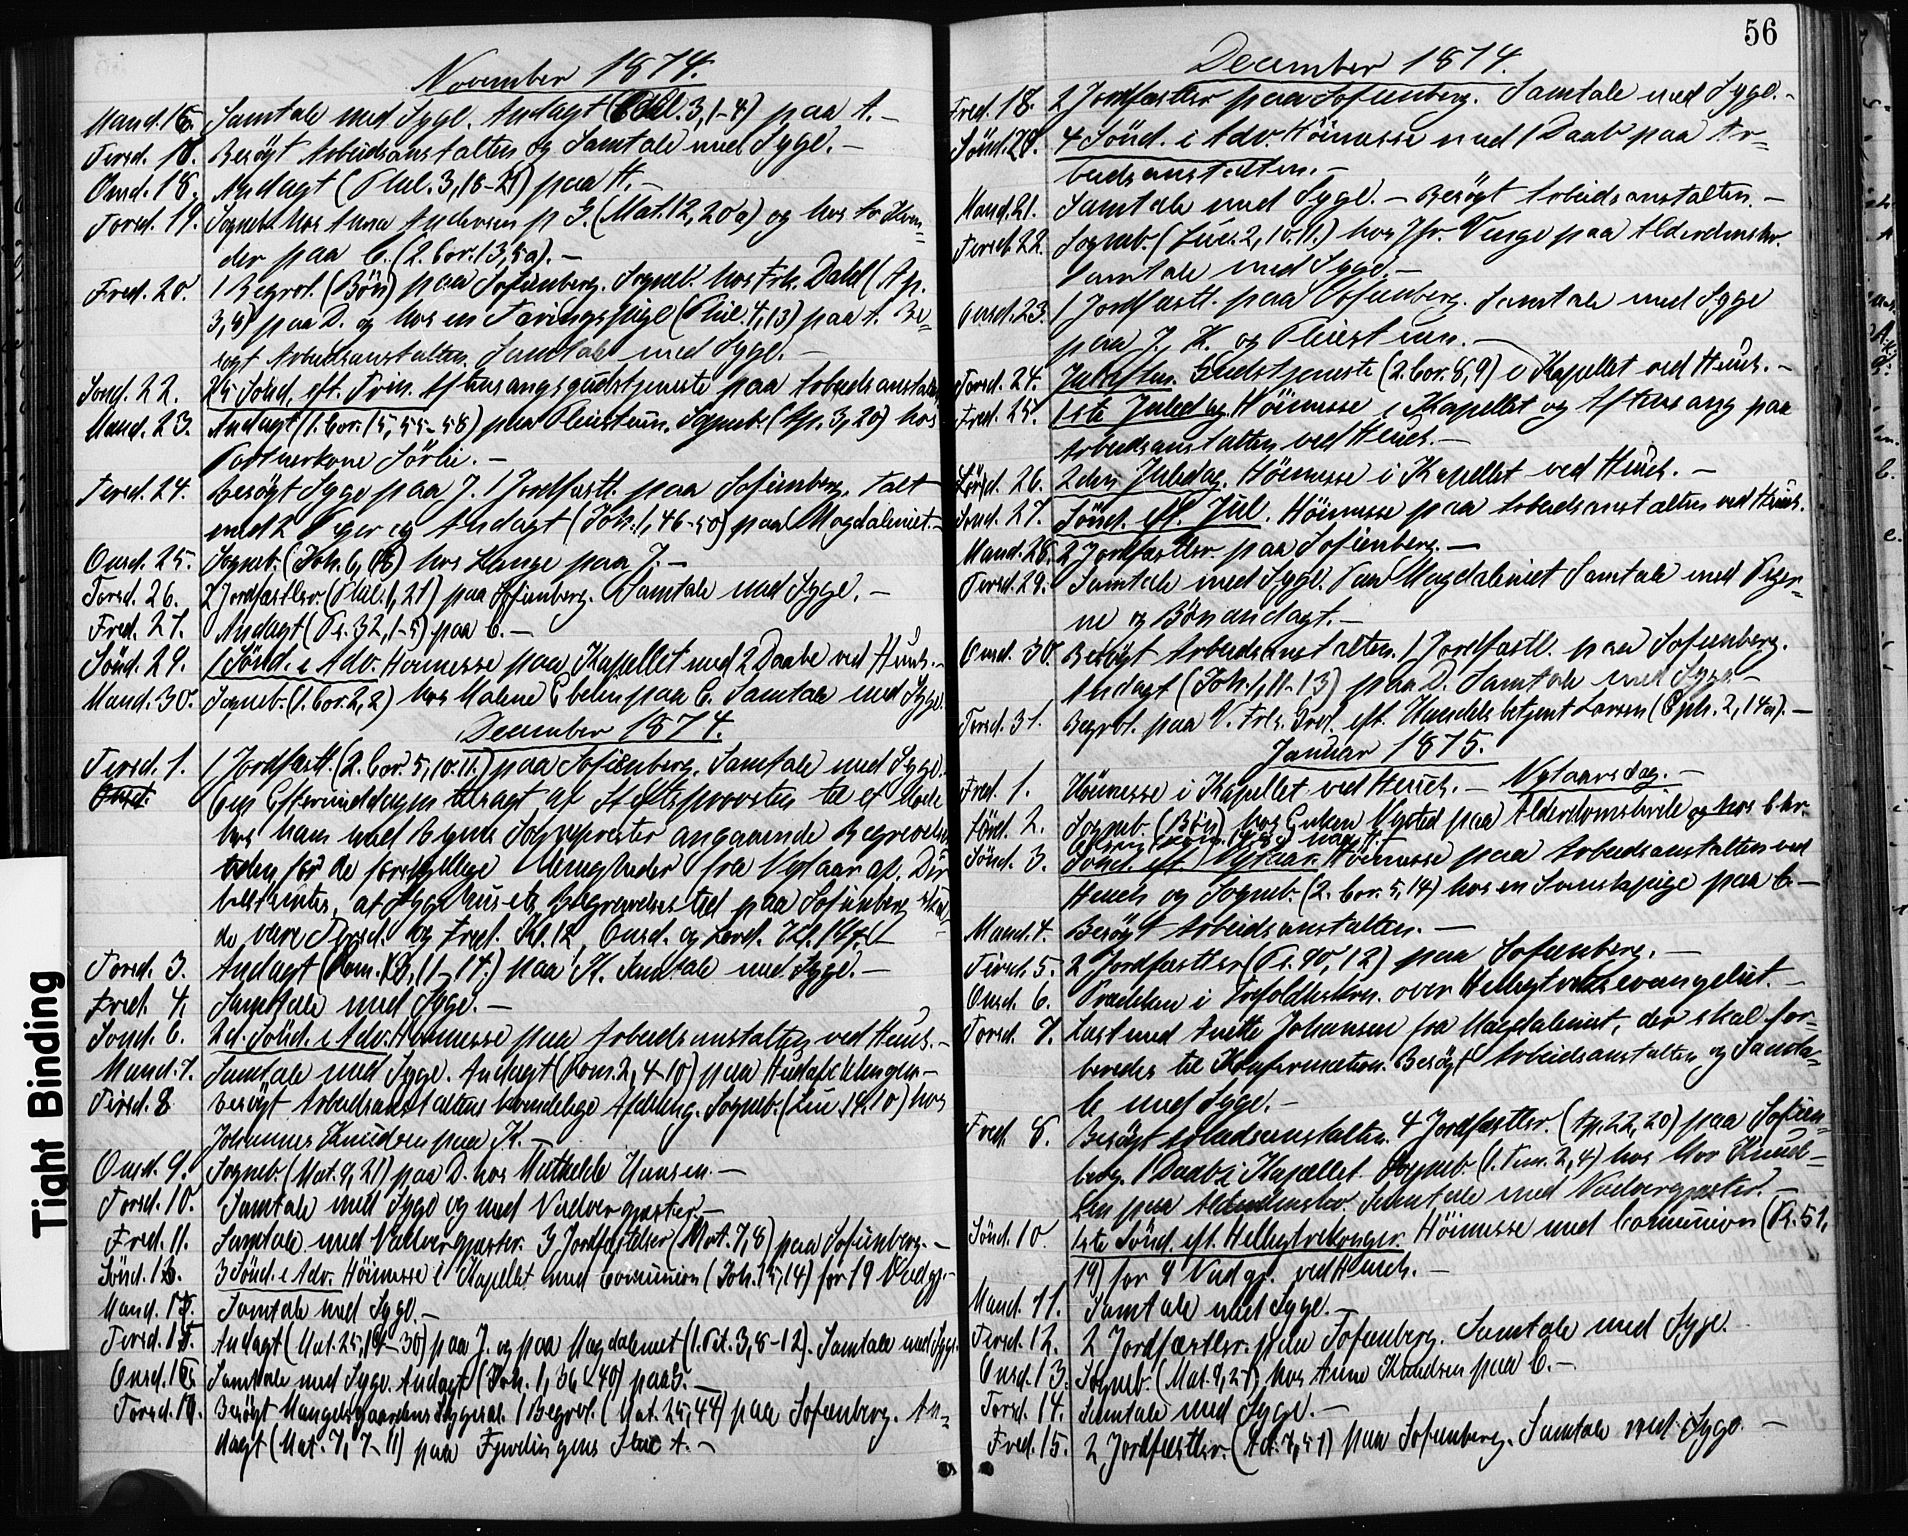 November 1874.
Mand. 16. Samtale med Syge. Andagt (Phil. 3, 1-4) paa A. –
Tirsd. 17. Besögt Arbeidsanstalten og Samtale med Syge. –
Onsd. 18. Andagt (Phil. 3, 18-21) paa H. –
Torsd. 19. Sogneb. hos Anna Andersen p G. (Mat. 12, 20a) og hos to Kvin-
der paa C. (2. Cor. 13, 5a). –
Fred. 20. 1 Begrvl. (Bön) paa Sofienberg. Sogneb. hos Frk. Dahl (Ap.
3, 8) paa D. og hos en Tæringspige (Phil. 4, 13) paa A. Be-
sögt Arbeidsanstalten. Samtale med Syge. –
Sönd. 22. 25 Sönd. eft. Trin. Aftensangsgudstjeneste paa Arbeidsanstalten
Mand. 23. Andagt (1. Cor. 15, 55-58) paa Pleiestuen. Sogneb. (Ap. 3, 20) hos
Portnerkone Sörlie. –
Tirsd. 24. Besögt Syge paa J. 1 Jordfæstl. paa Sofienberg. Talt
med 2 Piger og Andagt (Joh. 1, 46-50) paa Magdaleniet. –
Onsd. 25. Sogneb. (Joh. 6, 68) hos Lange paa J. –
Torsd. 26. 2 Jordfæstlsr. (Phil. 1, 21) paa Sofienberg. Samtale med Syge. –
Fred. 27. Andagt (Ps. 32, 1-5) paa C. –
Sönd. 29. 1 Sönd. i Adv. Höimesse paa Kapellet med 2 Daabe ved Heuch. –
Mand. 30. Sogneb. (1. Cor. 2, 2) hos Malene Ebelen paa C. Samtale med Syge.
December 1874.
Tirsd. 1. 1 Jordfæstl. (2. Cor. 5, 10. 11.) paa Sofienberg. Samtale med Syge.
Onsd. Om Eftermiddagen tilsagt af Stiftsprovsten til et Möde
hos ham med Byens Sogneprester angaaende Begravelses-
tiden for de forskjellige Menigheder fra Nytaar af. Der
bestemtes, at Sygehusets Begravelsestid paa Sofienberg skul-
de være Tirsd. og Fred. Kl. 12, Onsd. og Lörd. Kl. 1 1/4. –
Torsd. 3. Andagt (Rom. 13, 11-14.) paa K. Samtale med Syge. –
Fred. 4. Samtale med Syge. –
Sönd. 6. 2d. Sönd. i Adv. Höimesse paa Arbeidsanstalten ved Heuch. –
Mand. 7. Samtale med Syge. Andagt (Rom. 2, 4-10) paa Hudafdelingen –
Tirsd. 8 Besögt Arbeidsanstaltens kvindelige Afdeling. Sogneb. (Luc. 19, 10) hos
Johannes Knudsen paa K. –
Onsd. 9. Sogneb. (Mat. 9, 21) paa D. hos Mathilde Hansen. –
Torsd. 10. Samtale med Syge og med Nadvergjæster. –
Fred. 11. Samtale med Nadvergjæster. 3 Jordfæstelser (Mat. 7, 8) paa Sofienberg. –
Sönd. 13. 3 Sönd. i Adv. Höimesse i Kapellet med Comunion (Joh. 15, 14) for 19 Nadvgj. –
Mand. 14. Samtale med Syge. –
Tirsd. 15. Andagt (Mat. 25, 14-30) paa J. og paa Magdaleniet (1. Pet. 3, 8-12). Samtale med Syge.
Onsd. 16. Samtale med Syge. Andagt (Joh. 1, 36-40) paa S. –
Torsd. 17. Besögt Mangelsgaardens Sygesal. 1 Begrvl. (Mat. 25, 44) paa Sofienberg. An-
dagt (Mat. 7, 7-11) paa A. –
56
December 1874.
Fred. 18. 2 Jordfæstlsr. paa Sofienberg. Samtale med Syge. –
Sönd. 20. 4 Sönd. i Adv. Höimesse med 1 Daab paa Ar-
beidsanstalten. –
Mand. 21. Samtale med Syge. – Besögt Arbeidsanstalten. –
Tirsd. 22. Sogneb. (Luc. 2, 10. 11.) hos Jfr. Vinge paa Alderdomshv.
Samtale med Syge. –
Onsd. 23. 1 Jordfæstl. paa Sofienberg. Samtale med Syge
paa J., K. og Pleiestuen. –
Torsd. 24. Juleaften. Gudstjeneste (2. Cor. 8, 9) i Kapellet ved Heuch. –
Fred. 25. 1ste Juledag. Höimesse i Kapellet og Aftensang paa
Arbeidsanstalten ved Heuch. –
Lörd. 26. 2den Juledag. Höimesse i Kapellet ved Heuch. –
Sönd. 27. Sönd. eft. Jul. Höimesse paa Arbeidsanstalten ved Heuch.
Mand. 28. 2 Jordfæstlsr. paa Sofienberg. –
Tirsd. 29. Samtale med Syge. Paa Magdaleniet Samtale med Piger-
ne og Bönandagt. –
Onsd. 30. Besögt Arbeidsanstalten. 1 Jordfæstl. paa Sofienberg.
Andagt (Joh. 1, 11-13) paa D. Samtale med Syge. –
Torsd. 31. Begrvl. paa V. Frls. Grvl. eft. Handelsbetjent Larsen (Eph. 2, 14a). –
Januar 1875.
Fred. 1. Höimesse i Kapellet ved Heuch. – Nytaarsdag. –
Lörd. 2. Sogneb. (Bön) hos Enken Nysted paa Alderdomshvile og hos Chr.
Sönd. 3. Sönd. eft. Nytaar. Höimesse paa Arbeidsanstalten ved
Heuch og Sogneb. (2. Cor. 5, 14) hos en Svenskpige paa C. –
Mand. 4. Besögt Arbeidsanstalten. –
Tirsd. 5. 2 Jordfæstlsr. (Ps. 90, 12) paa Sofienberg. –
Onsd. 6. Prædiken i Trefoldhkrkn. over Helligtrekevangeliet. –
Torsd. 7. Læst med Anette Johansen fra Magdaleniet, der skal for-
beredes til Konfirmation. Besögt Arbeidsanstalten og Samta-
le med Syge. –
Fred. 8. Besögt Arbeidsanstalten. 4 Jordfæstlsr. (Ap. 22, 20) paa Sofien-
berg. 1 Daab i Kapellet. Sogneb. (1. Tim. 2, 4) hos Mor Knud-
sen paa Alderdomshv. Samtale med Nadvergjæster. –
Sönd. 10. 1ste Sönd. eft. Helligtrekonger. Höimesse med Comunion (Ps. 51,
19) for 9 Nadvgj. ved Heuch. –
Mand. 11. Samtale med Syge. –
Tirsd. 12. 2 Jordfæstlsr. paa Sofienberg. Samtale med Syge.
Onsd. 13. Sogneb. (Mat. 9, 21) hos Anne Knudsen paa C. –
Torsd. 14. Samtale med Syge. –
Fred. 15. 2 Jordfæstlsr. (Act. 7, 51) paa Sofienberg. Samtale med Syge. –
Tight Binding